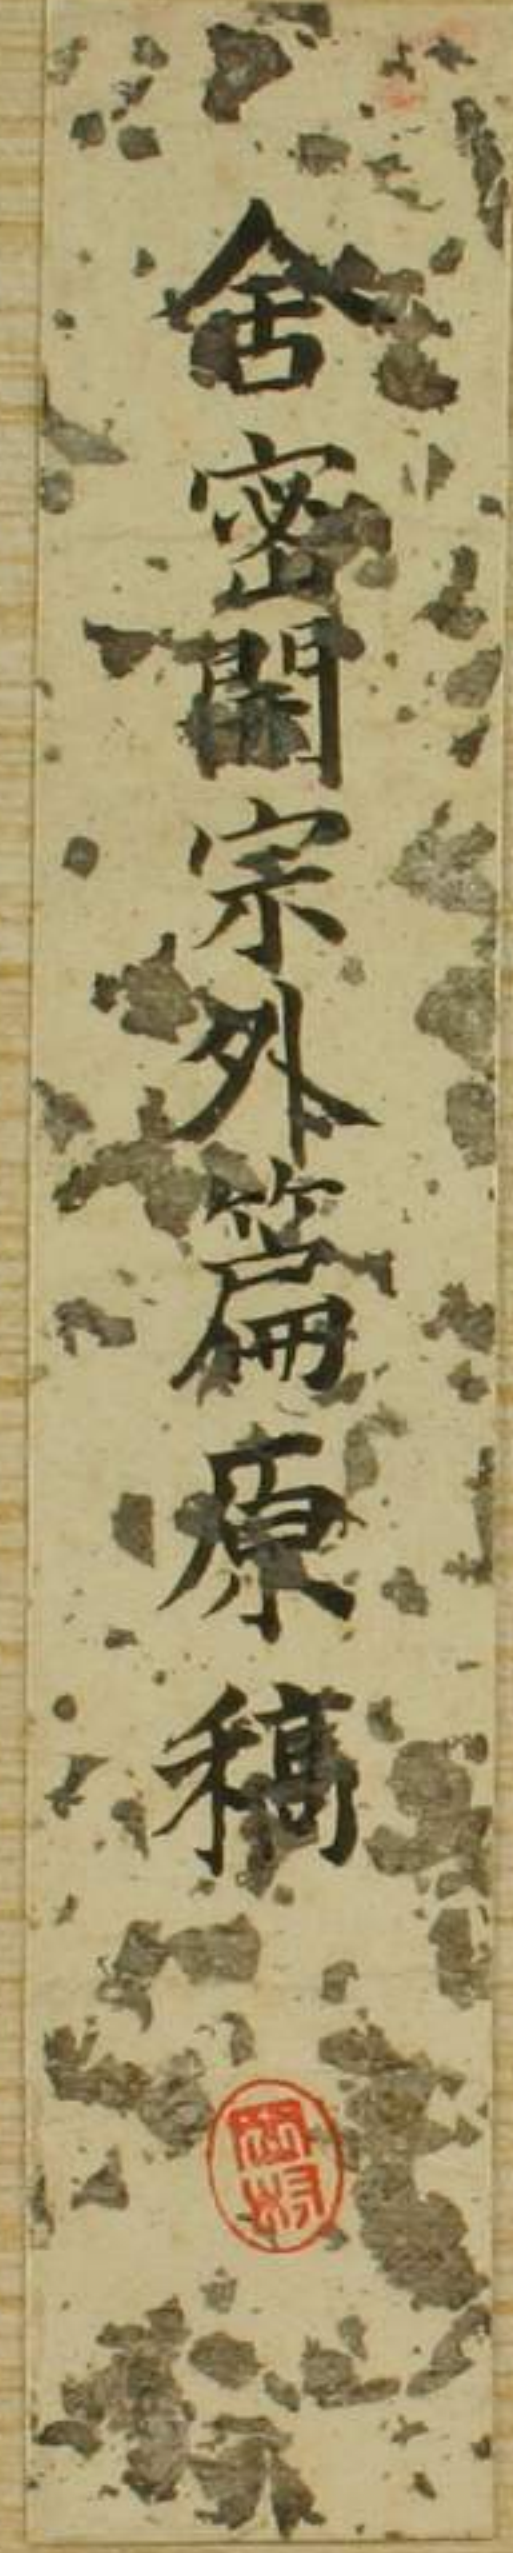 舎密開宗外篇原稿